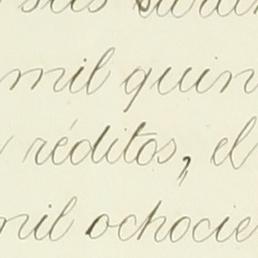 mil quin
réditos, el
mil ochocie